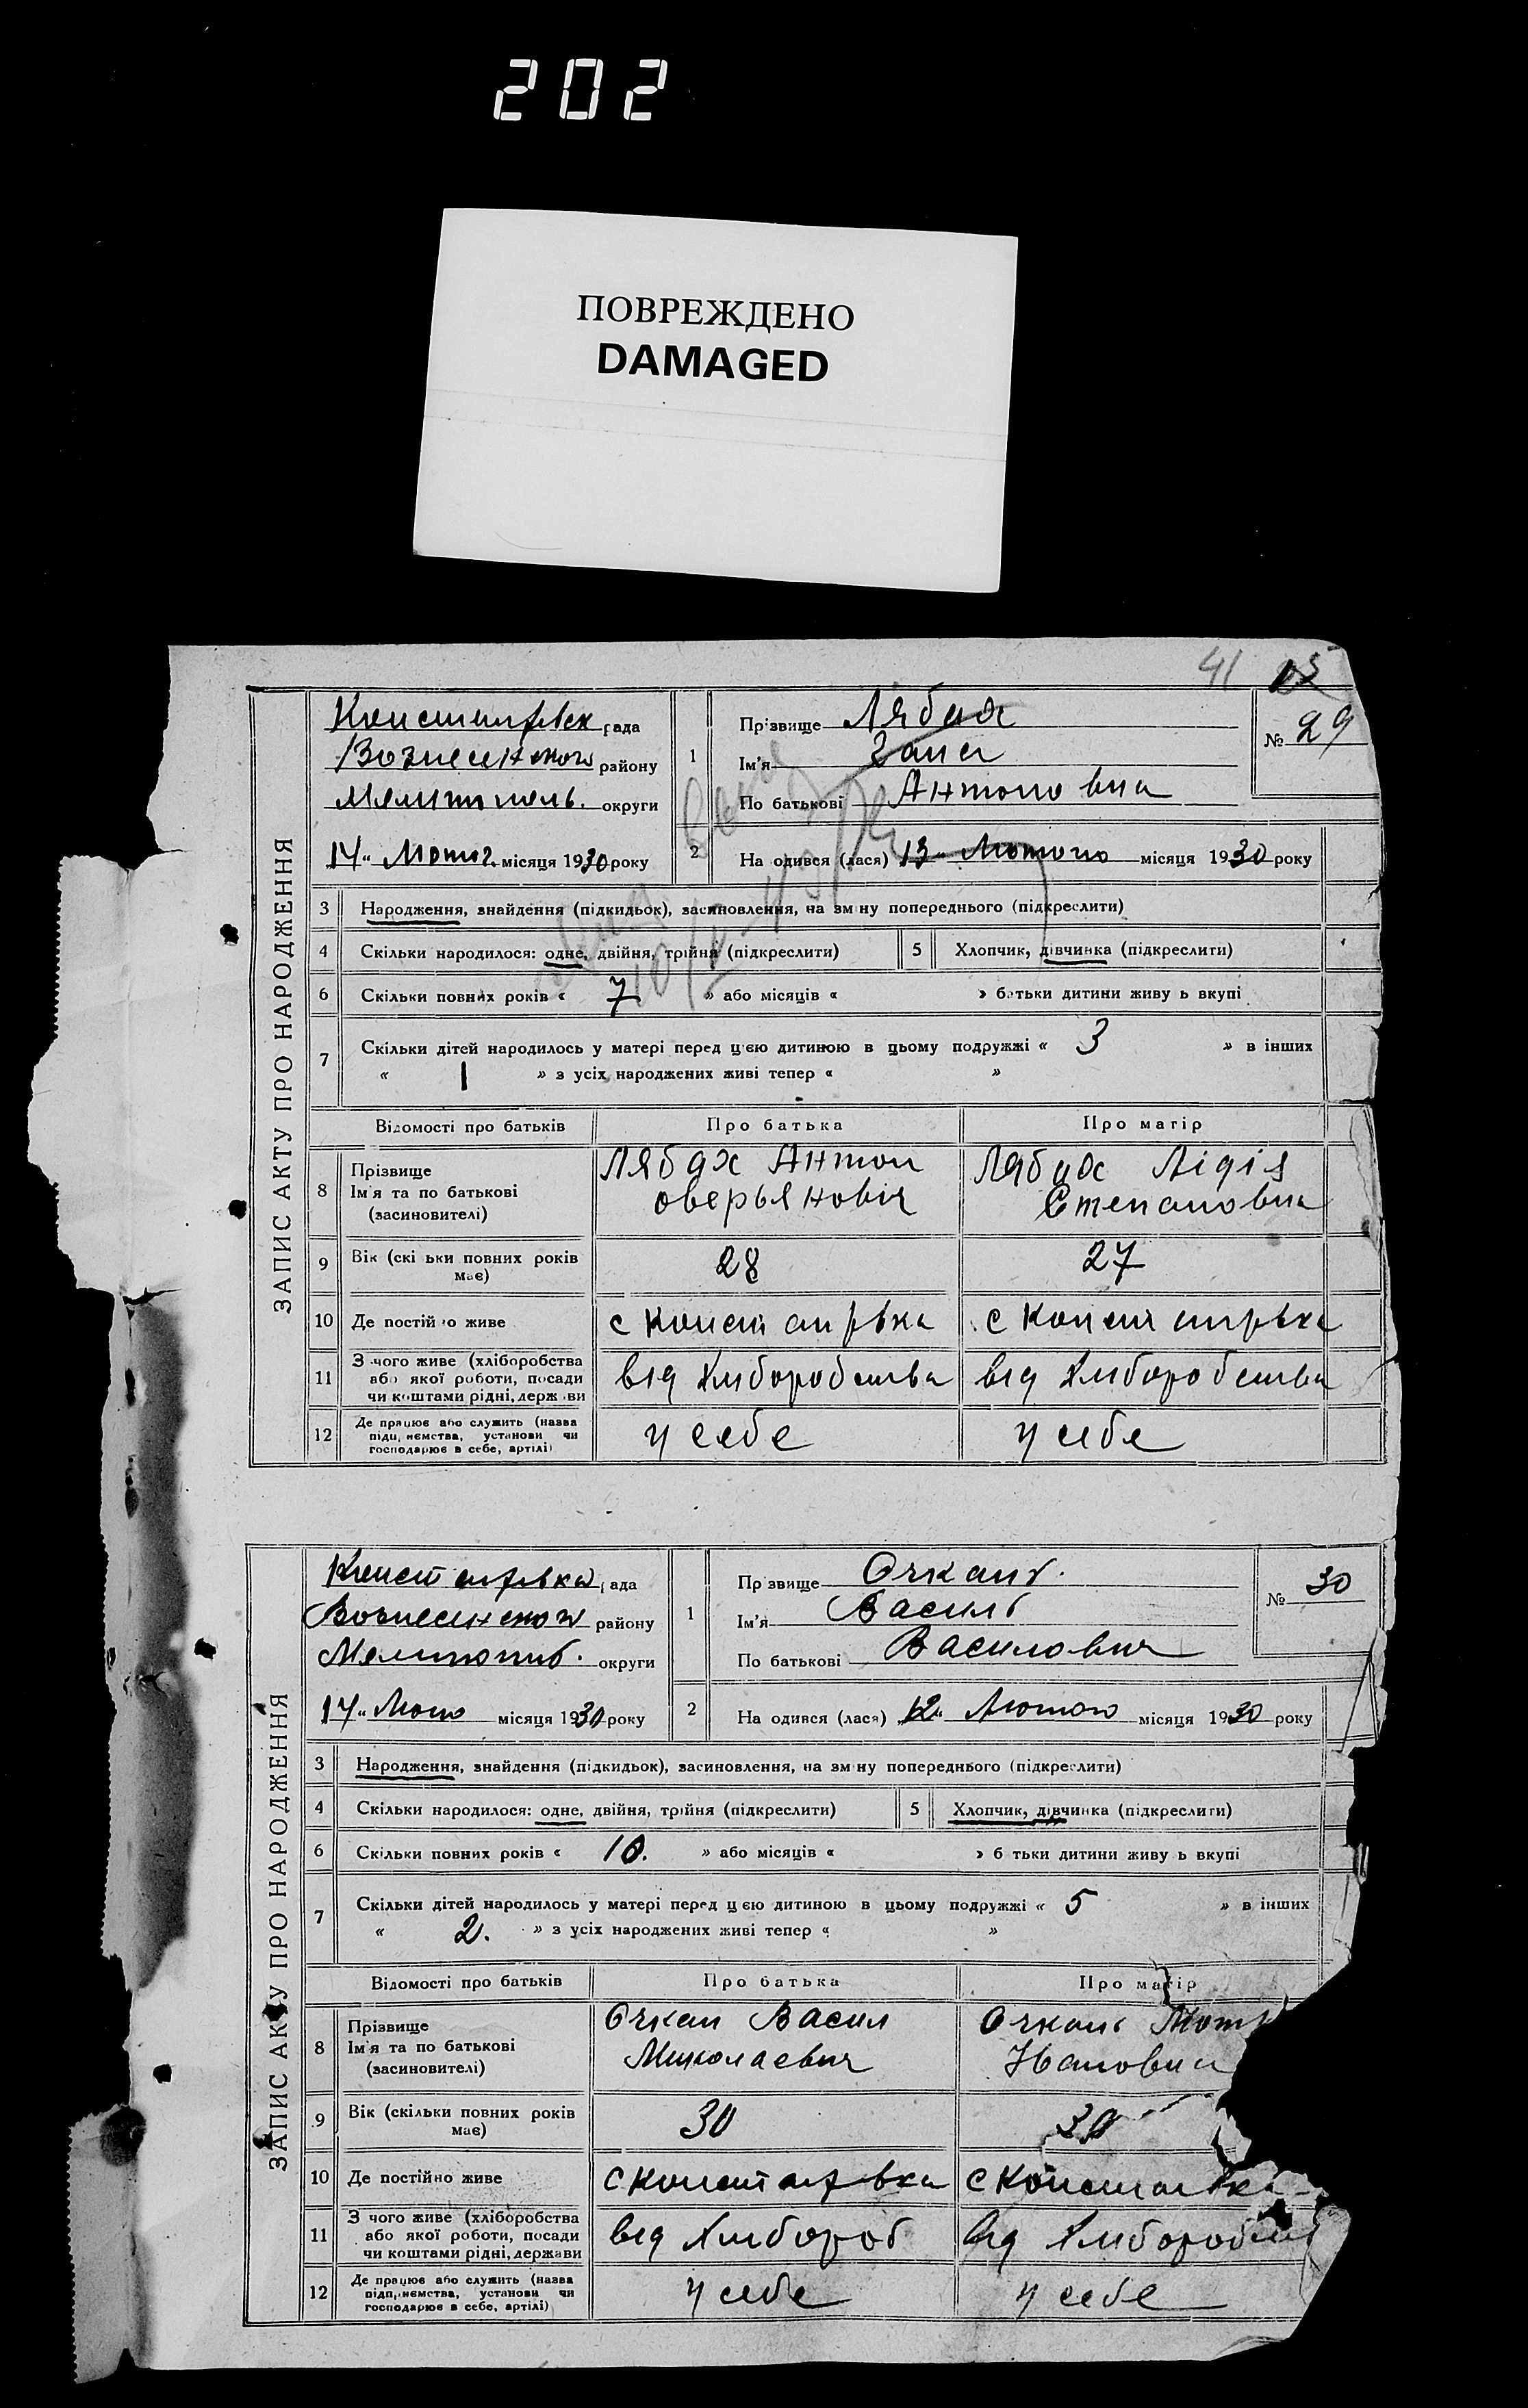 202
ПОВРЕЖДЕНО
DAMAGED
41
ЗАПИС АКТУ ПРО НАРОДЖЕННЯ
рада
району
округи
14 " Лютог місяця 1930 року
1
Прізвище Лябах
Ім'я
По батькові Антоновна
№ 29
2
На одився (лася) 13 " Лютого місяця 1930 року
3 Народження, знайдення (підкидьок), засиновлення, на зм ну попереднього (підкреслити)
4 Скільки народилося: одне, двійня, трійня (підкреслити) 5 Хлопчик, дівчинка (підкреслити)
6 Скільки повних років « 7 » або місяців « » батьки дитини живу ь вкупі
7 Скільки дітей народилось у матері перед цією дитиною в цьому подружжі « 3 » в інших
« 1 » з усіх народжених живі тепер « »
Відомості про батьків Про батька Про матір
8 Прізвище
Ім'я та по батькові
(засиновителі)
Лябах Антон
оверьянович
Лябах Лідія
Степановна
9 Вік (скі ьки повних років
має)
28 27
10 Де постій о живе
11 З чого живе (хліборобства
або якої роботи, посади
чи коштами рідні, держ ви
від Хліборобства від Хліборобства
12 Де працює або служить (назва
підп иємства, установи чи
господарює в себе, артілі)
у себе у себе
ЗАПИС АКТУ ПРО НАРОДЖЕННЯ
рада
району
округи
14 " місяця 1930 року
1
Пр звище
Ім'я Василь
По батькові Василович
№ 30
2
На одився (лася) 12 " Лютого місяця 1930 року
3 Народження, знайдення (підкидьок), засиновлення, на зм ну попереднього (підкреслити)
4 Скільки народилося: одне, двійня, трійня (підкреслити) 5 Хлопчик, дівчинка (підкреслити)
6 Скільки повних років « 10. » або місяців « » б тьки дитини живу ь вкупі
7 Скільки дітей народилось у матері перед ц єю дитиною в цьому подружжі « 5 » в інших
« 2. » з усіх народжених живі тепер « »
Відомості про батьків Про батька Про матір
8 Прізвище
Ім'я та по батькові
(засиновителі)
Очкан Васил
Миколаевич
Ивановна
9 Вік (скільки повних років
має)
30
10 Де постійно живе
11 З чого живе (хліборобства
або якої роботи, посади
чи коштами рідні, держави
від Хлібороб від
12 Де працює або служить (назва
підприємства, установи чи
господарює в себе, артілі)
у себе у себе